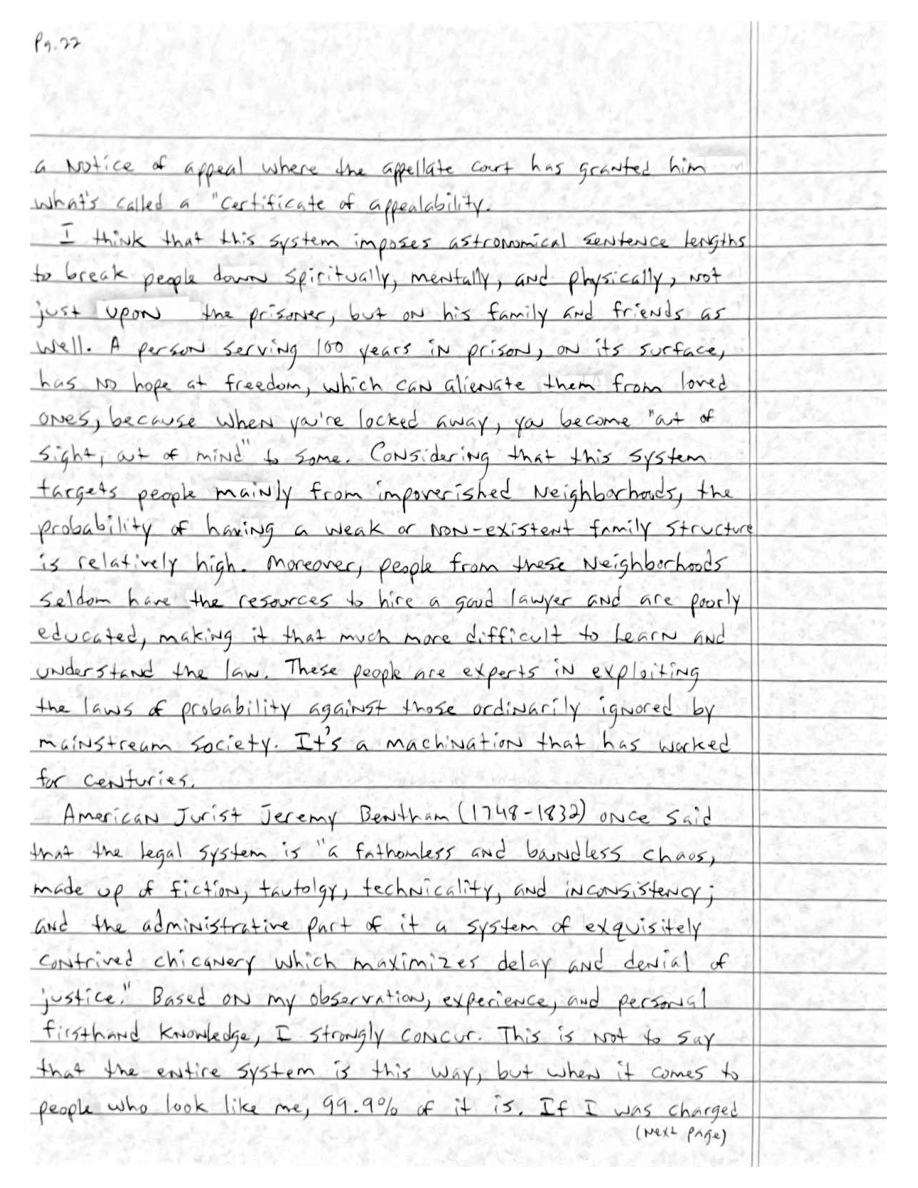 Pg.22
a Notice of appeal where the appellate court has granted him
what's called a "certificate of appealability.
I think that this system imposes astronomical sentence lengths
to break people down spiritually, mentally, and physically, not
just upon the prisoner, but on his family and friends as
well. A person serving 100 years in prison, on its surface,
has no hope at freedom, which can alienate them from loved
ones, because when you're locked away, you become "out of
sight, out of mind" to some. Considering that this system
targets people mainly from impoverished Neighborhoods, the
probability of having a weak or non-existent family structure
is relatively high. Moreover, people from these Neighborhoods
seldom have the resources to hire a good lawyer and are poorly
educated, making it that much more difficult to learn and
understand the law. These people are experts in exploiting
the laws of probability against those ordinarily ignored by
mainstream society. It's a machination that has worked
for centuries.
American Jurist Jeremy Bentham (1748-1832) once said
that the legal system is "a fathomless and boundless chaos,
made up of fiction, tautolgy, technicality, and inconsistency;
and the administrative part of it a system of exquisitely
contrived chicanery which maximizes delay and denial of
justice." Based on my observation, experience, and personal
firsthand knowledge, I strongly concur. This is not to say
that the entire system is this way, but when it comes to
people who look like me, 99.9% of it is. If I was charged
(Next page)